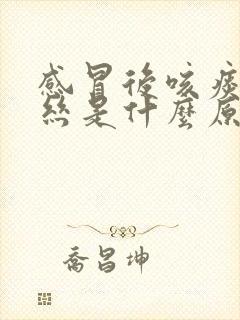 感冒後咳痰
絲是什麼原
喬昌坤